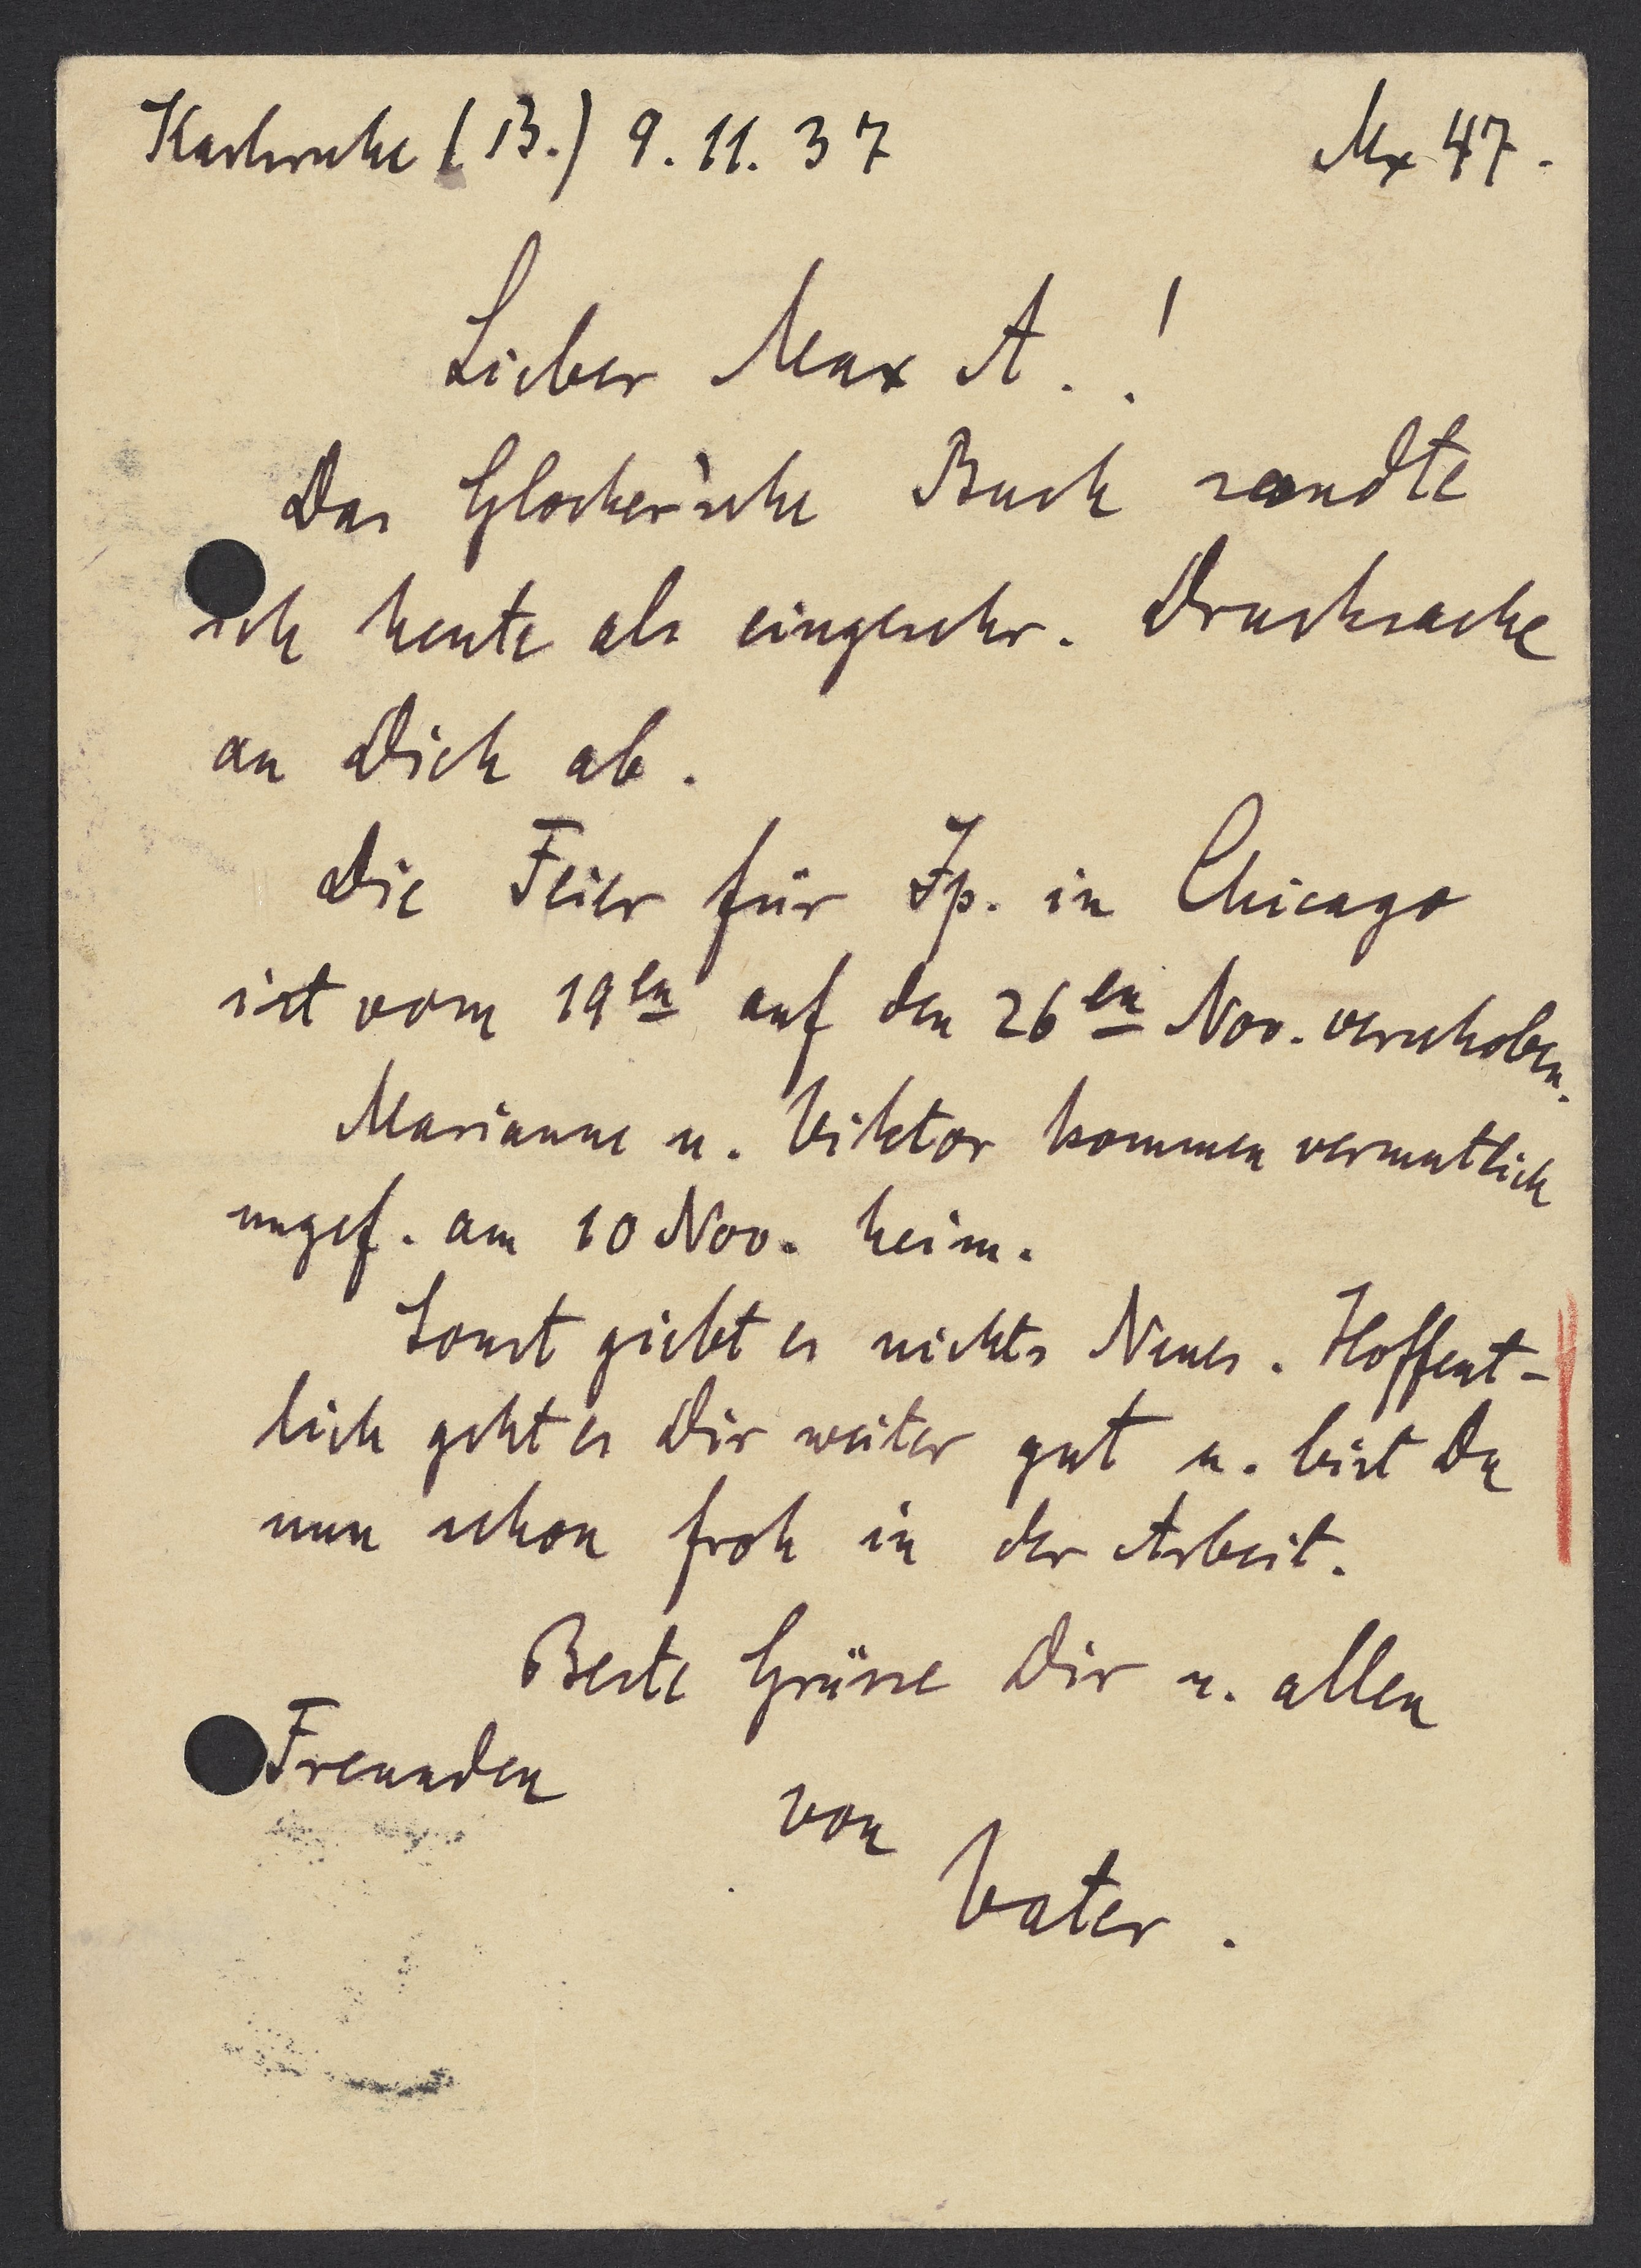 Karlsruhe (B.) 9. 11. 37 Mx 47.
Lieber Max A.!
Das Glocker'sche Buch sandte
ich heute als eingeschr. Drucksache
an Dich ab.
Die Feier für Jp. in Chicago
ist vom 19en auf den 26en Nov. verschoben.
Marianne u. Viktor kommen vermutlich
ungef. am 10 Nov. heim.
Sonst giebt es nichts Neues. Hoffent-
lich geht es Dir weiter gut u. bist Du
nun schon froh in der Arbeit.
Beste Grüsse Dir u. allen
Freunden
von
Vater.